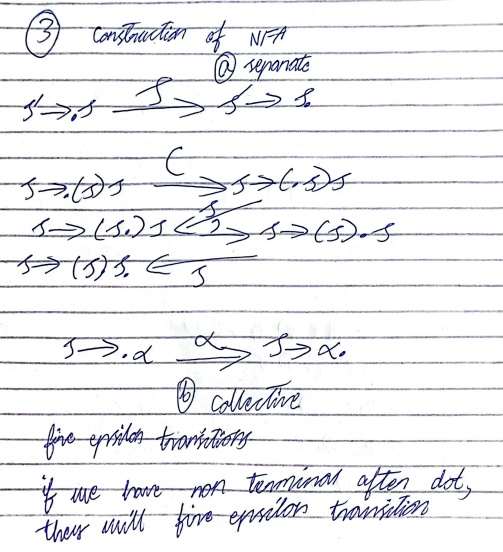 ③ Construction of NFA
ⓐ separate
S'→.S S→ S'→S.
S→.(S)S (→ S→(.S)S
S→(S.)S )→ S→(S).S
S→(S)S. ← S
S→.α α→ S→α.
ⓑ collective
fire epsilon transitions
if we have non terminal after dot,
they will fire epsilon transition